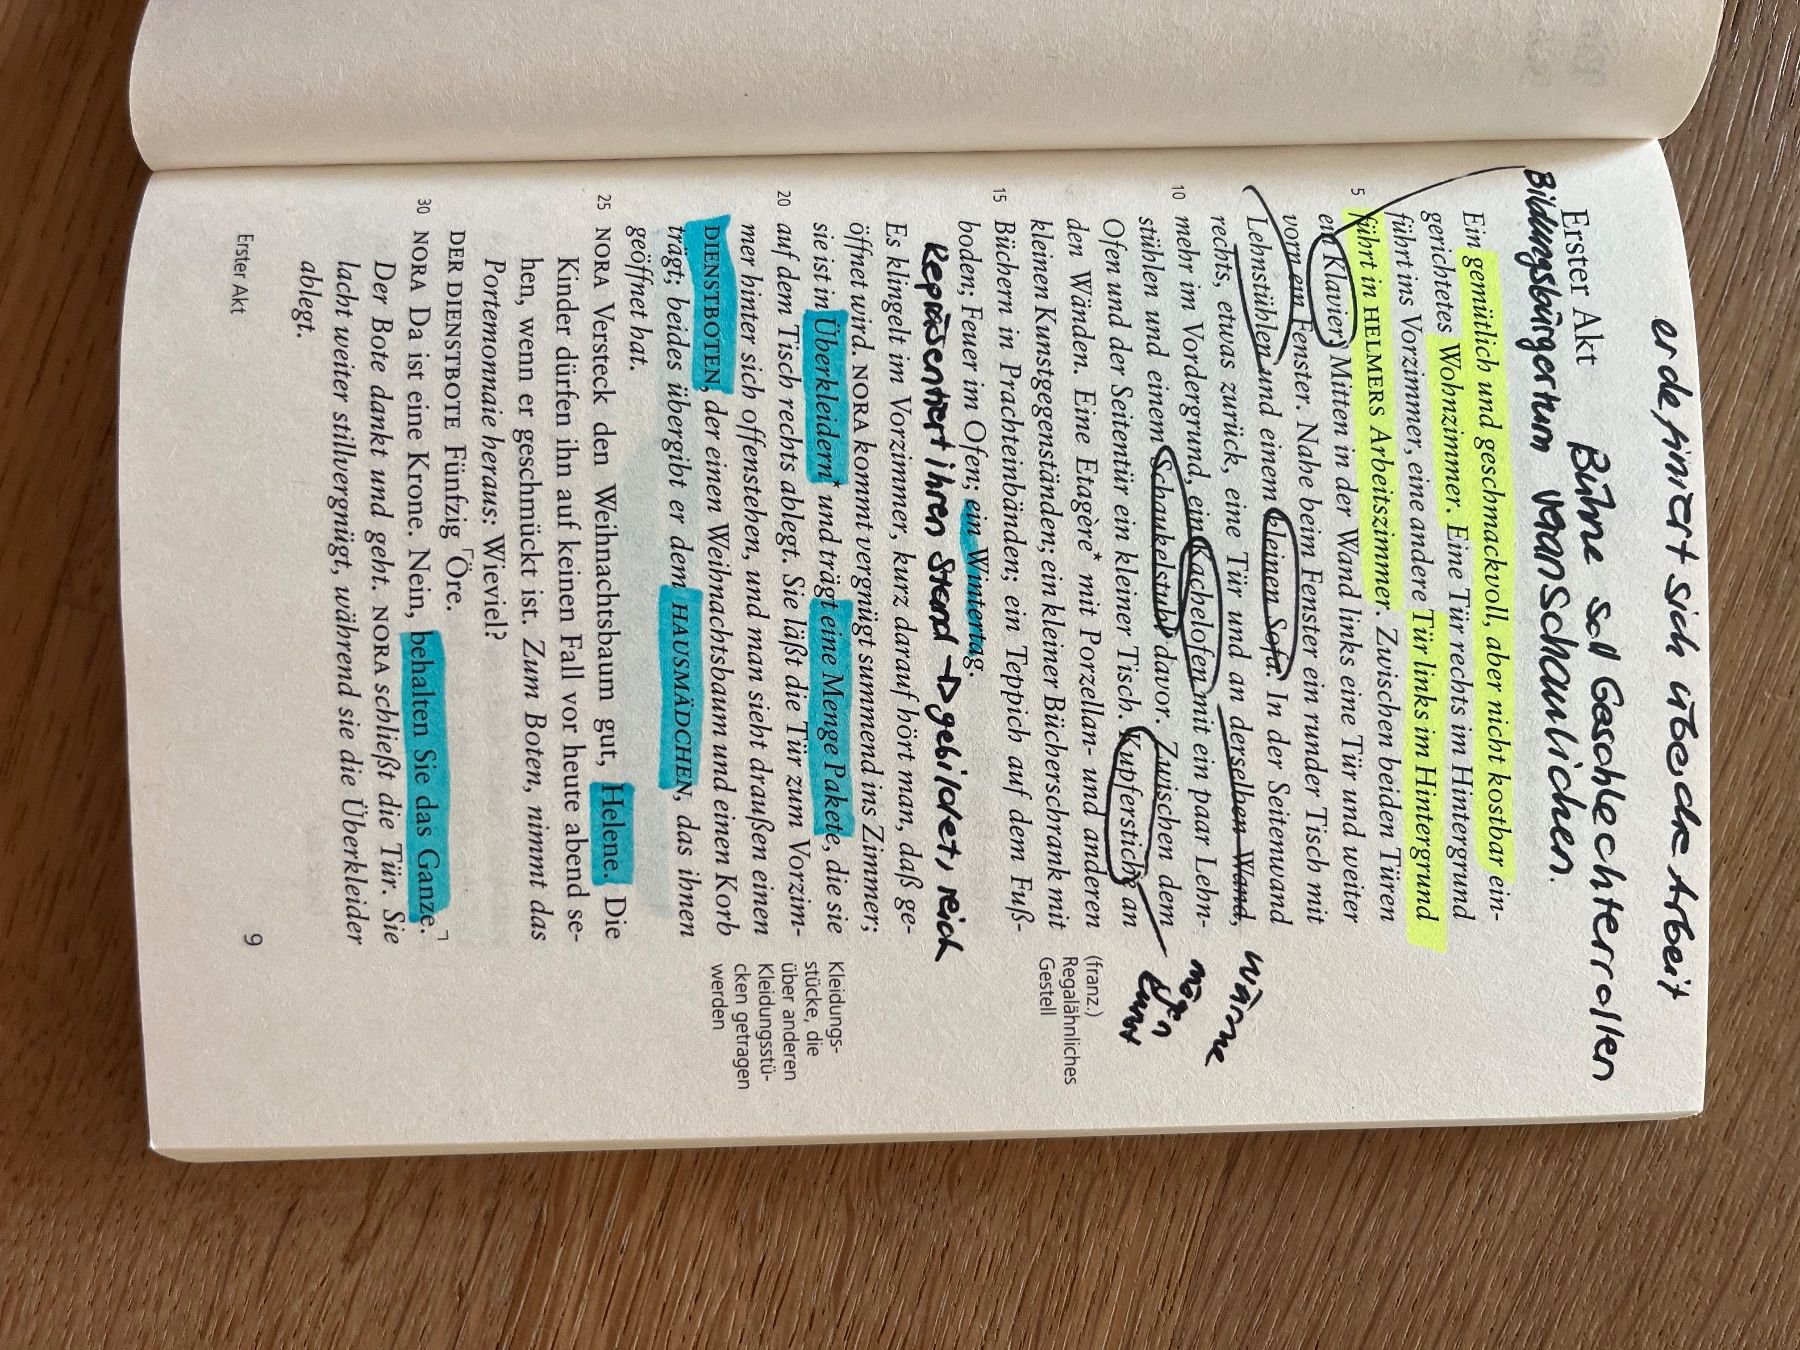 erdefiniert sich über die Arbeit
Bühne soll Geschlechterrollen
Erster Akt
Bildungsbürgertum veranschaulichen.
Ein gemütlich und geschmackvoll, aber nicht kostbar ein-
gerichtetes Wohnzimmer. Eine Tür rechts im Hintergrund
führt ins Vorzimmer, eine andere Tür links im Hintergrund
5 führt in HELMERS Arbeitszimmer. Zwischen beiden Türen
ein Klavier. Mitten in der Wand links eine Tür und weiter
vorn ein Fenster. Nahe beim Fenster ein runder Tisch mit
Lehnstühlen und einem kleinen Sofa. In der Seitenwand
rechts, etwas zurück, eine Tür und an derselben Wand,
wärme
10 mehr im Vordergrund, ein Kachelofen mit ein paar Lehn-
stühlen und einem Schaukelstuhl davor. Zwischen dem
Ofen und der Seitentür ein kleiner Tisch. Kupferstiche an
den Wänden. Eine Etagère* mit Porzellan- und anderen
(franz.)
Regalähnliches
Gestell
kleinen Kunstgegenständen; ein kleiner Bücherschrank mit
15 Büchern in Prachteinbänden; ein Teppich auf dem Fuß-
boden; Feuer im Ofen; ein Wintertag.
Repräsentiert ihren Stand → gebildet, reich
Es klingelt im Vorzimmer, kurz darauf hört man, daß ge-
öffnet wird. NORA kommt vergnügt summend ins Zimmer;
sie ist in Überkleidern* und trägt eine Menge Pakete, die sie
Kleidungs-
stücke, die
über anderen
Kleidungsstü-
cken getragen
werden
20 auf dem Tisch rechts ablegt. Sie läßt die Tür zum Vorzim-
mer hinter sich offenstehen, und man sieht draußen einen
DIENSTBOTEN, der einen Weihnachtsbaum und einen Korb
trägt; beides übergibt er dem HAUSMÄDCHEN, das ihnen
geöffnet hat.
25 NORA Versteck den Weihnachtsbaum gut, Helene. Die
Kinder dürfen ihn auf keinen Fall vor heute abend se-
hen, wenn er geschmückt ist. Zum Boten, nimmt das
Portemonnaie heraus: Wieviel?
DER DIENSTBOTE Fünfzig ⌈Öre.
30 NORA Da ist eine Krone. Nein, behalten Sie das Ganze.⌉
Der Bote dankt und geht. NORA schließt die Tür. Sie
lacht weiter stillvergnügt, während sie die Überkleider
ablegt.
Erster Akt
9